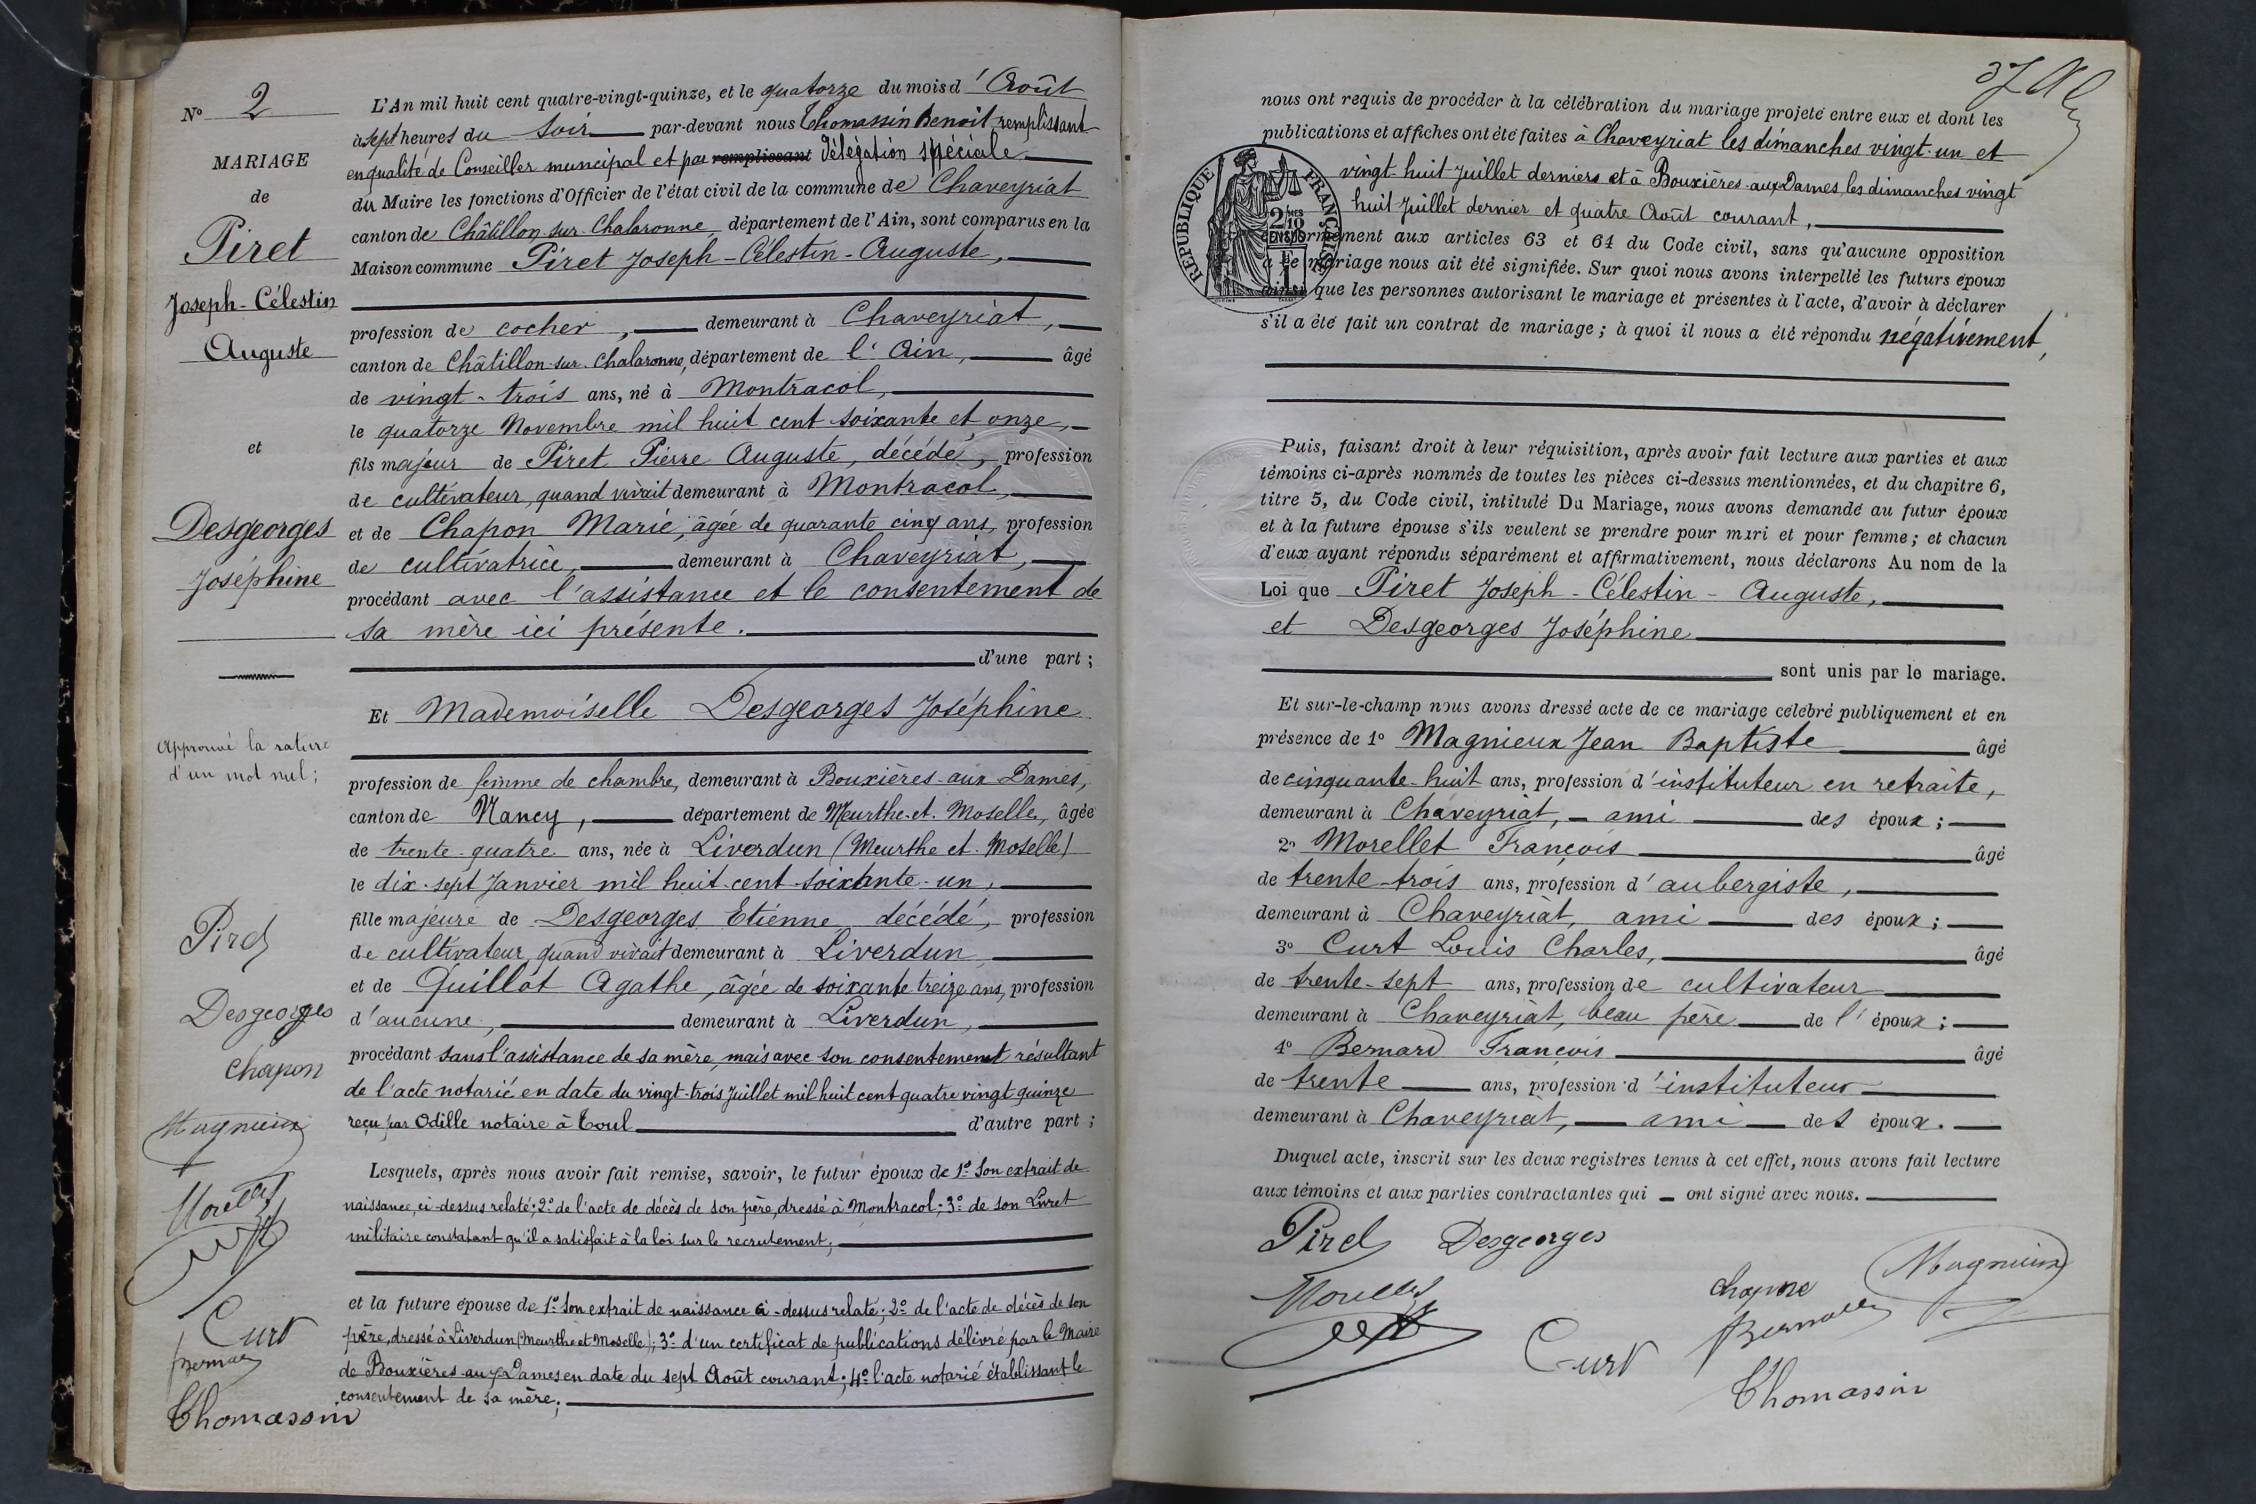 N° 2
MARIAGE
de
Piret
Joseph-Célestin
Auguste
et
Desgeorges
Joséphine
Approuvé la rature
d'un mot nul;
Piret
Desgeorges
Chapon
Magnieux
Morellet
Curt
Bernard
Thomassin
L'An mil huit cent quatre-vingt-quinze, et le quatorze du mois d'Août
à sept heures du soir par-devant nous Thomassin Benoit remplissant
en qualité de Conseiller municipal et par remplissant délégation spéciale
du Maire les fonctions d'Officier de l'état civil de la commune de Chaveyriat
canton de Châtillon-sur-Chalaronne, département de l'Ain, sont comparus en la
Maison commune Piret Joseph-Célestin-Auguste,
profession de cocher, demeurant à Chaveyriat,
canton de Châtillon-sur-Chalaronne, département de l'Ain, âgé
de vingt-trois ans, né à Montracol,
le quatorze Novembre mil huit cent soixante et onze,
fils majeur de Piret Pierre Auguste, décédé, profession
de cultivateur, quand vivait demeurant à Montracol,
et de Chapon Marie, âgée de quarante cinq ans, profession
de cultivatrice, demeurant à Chaveyriat,
procédant avec l'assistance et le consentement de
sa mère ici présente.
d'une part;
Et Mademoiselle Desgeorges Joséphine
profession de femme de chambre, demeurant à Bouxières-aux-Dames,
canton de Nancy, département de Meurthe-et-Moselle, âgée
de trente-quatre ans, née à Liverdun (Meurthe et Moselle)
le dix-sept Janvier mil huit-cent-soixante-un,
fille majeure de Desgeorges Etienne décédé, profession
de cultivateur, quand vivait demeurant à Liverdun
et de Quillot Agathe, âgée de soixante treize ans, profession
d'aucune, demeurant à Liverdun,
procédant sans l'assistance de sa mère, mais avec son consentement résultant
de l'acte notarié en date du vingt-trois Juillet mil huit cent quatre vingt quinze
reçu par Odille notaire à Toul d'autre part;
Lesquels, après nous avoir fait remise, savoir, le futur époux de 1° Son extrait de
naissance, ci-dessus relaté; 2° de l'acte de décès de son père, dressé à Montracol; 3° de son Livret
militaire constatant qu'il a satisfait à la loi sur le recrutement;
et la future épouse de 1° Son extrait de naissance ci-dessus relaté; 2° de l'acte de décès de son
père, dressé à Liverdun (Meurthe et Moselle); 3° d'un certificat de publications délivré par le Maire
de Bouxières-aux-Dames en date du sept Août courant; 4° l'acte notarié établissant le
consentement de sa mère;
37
nous ont requis de procéder à la célébration du mariage projeté entre eux et dont les
publications et affiches ont été faites à Chaveyriat les dimanches vingt-un et
vingt-huit Juillet derniers et à Bouxières-aux-Dames, les dimanches vingt
huit Juillet dernier et quatre Août courant,
conformément aux articles 63 et 64 du Code civil, sans qu'aucune opposition
à ce mariage nous ait été signifiée. Sur quoi nous avons interpellé les futurs époux
ainsi que les personnes autorisant le mariage et présentes à l'acte, d'avoir à déclarer
s'il a été fait un contrat de mariage; à quoi il nous a été répondu négativement,
RÉPUBLIQUE FRANÇAISE
2/10 EN SUS
Puis, faisant droit à leur réquisition, après avoir fait lecture aux parties et aux
témoins ci-après nommés de toutes les pièces ci-dessus mentionnées, et du chapitre 6,
titre 5, du Code civil, intitulé Du Mariage, nous avons demandé au futur époux
et à la future épouse s'ils veulent se prendre pour mari et pour femme; et chacun
d'eux ayant répondu séparément et affirmativement, nous déclarons Au nom de la
Loi que Piret Joseph-Célestin-Auguste,
et Desgeorges Joséphine
sont unis par le mariage.
Et sur-le-champ nous avons dressé acte de ce mariage célébré publiquement et en
présence de 1° Magnieux Jean Baptiste âgé
de cinquante-huit ans, profession d'instituteur en retraite,
demeurant à Chaveyriat, ami des époux;
2° Morellet François âgé
de trente-trois ans, profession d'aubergiste,
demeurant à Chaveyriat, ami des époux;
3° Curt Louis Charles, âgé
de trente-sept ans, profession de cultivateur
demeurant à Chaveyriat, beau père de l'époux;
4° Bernard François âgé
de trente ans, profession d'instituteur
demeurant à Chaveyriat, ami des époux.
Duquel acte, inscrit sur les deux registres tenus à cet effet, nous avons fait lecture
aux témoins et aux parties contractantes qui ont signé avec nous.
Piret Desgeorges
Morellet Chapon Magnieux
Curt Bernard
Thomassin